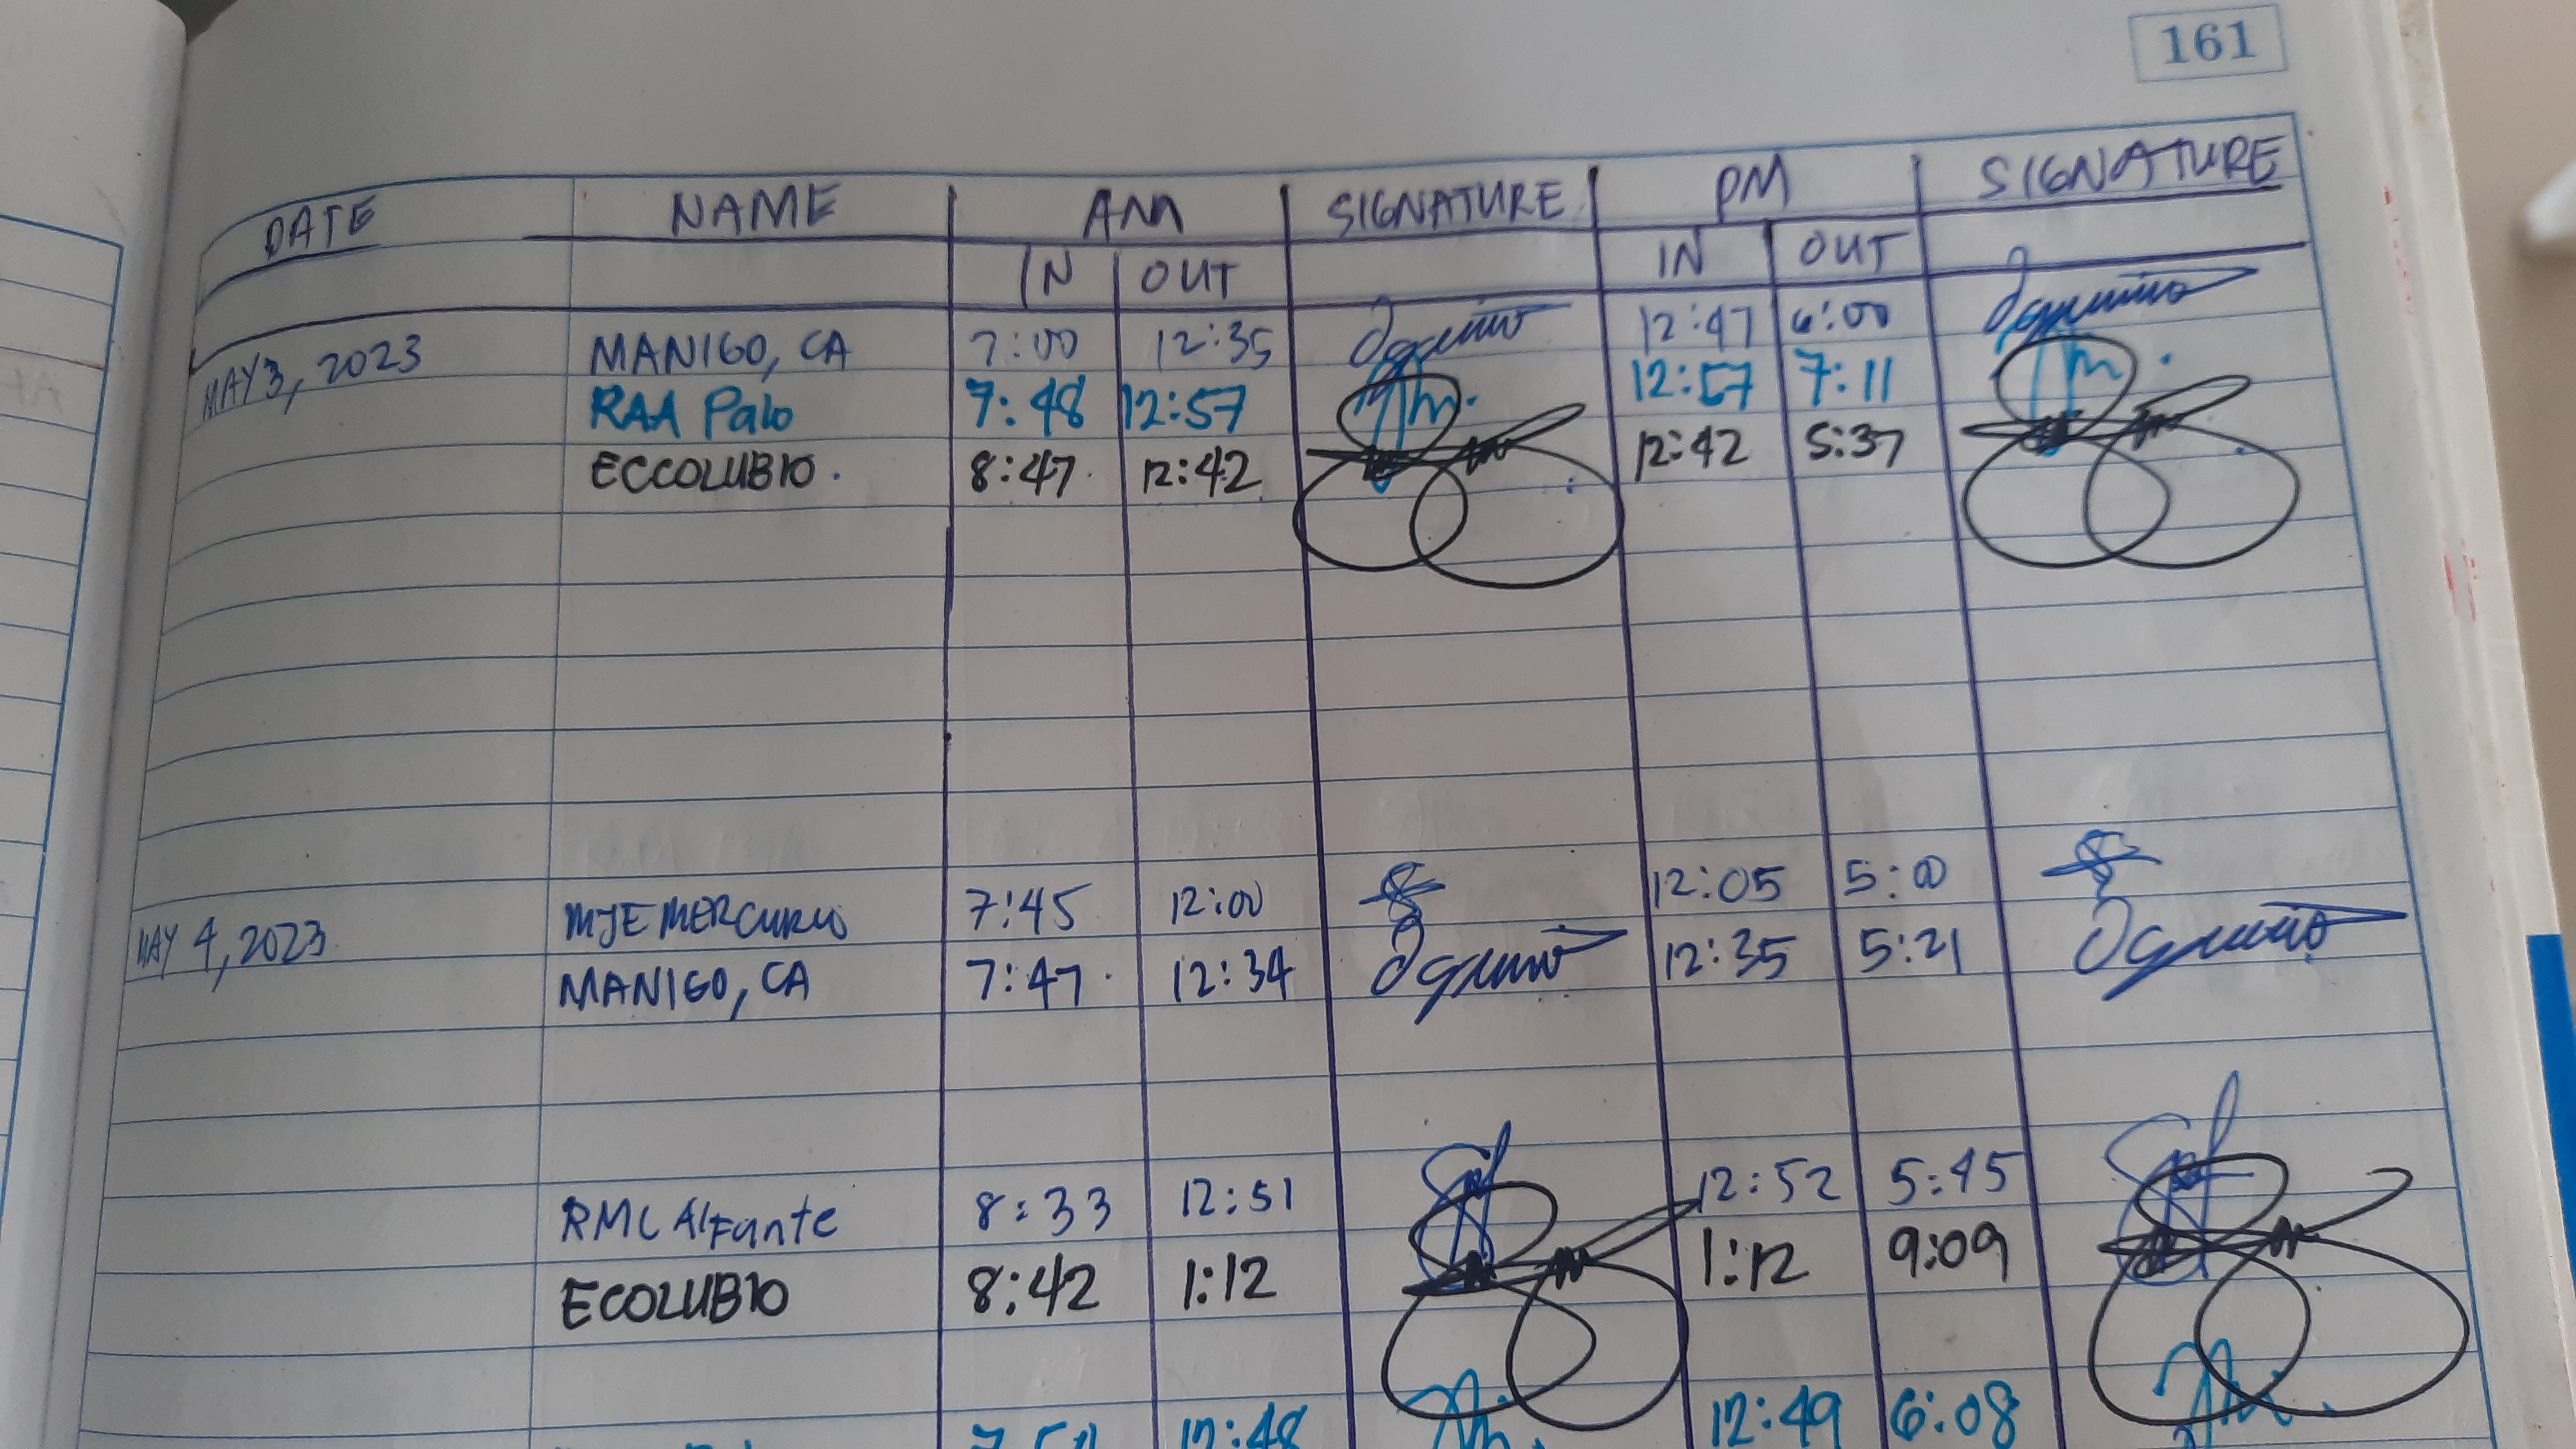 161
DATE NAME AM SIGNATURE PM SIGNATURE
IN OUT IN OUT
MAY 3, 2023 MANIGO, CA 7:00 12:35 12:47 6:00
RAA Palo 7:48 12:57 12:57 7:11
ECCOLUBIO. 8:47 12:42 12:42 5:37
MAY 4, 2023 MJE MERCURIO 7:45 12:00 12:05 5:00
MANIGO, CA 7:47 12:34 12:35 5:21
RMC Alfante 8:33 12:51 12:52 5:45
ECOLUBIO 8:42 1:12 1:12 9:09
12:48 12:49 6:08